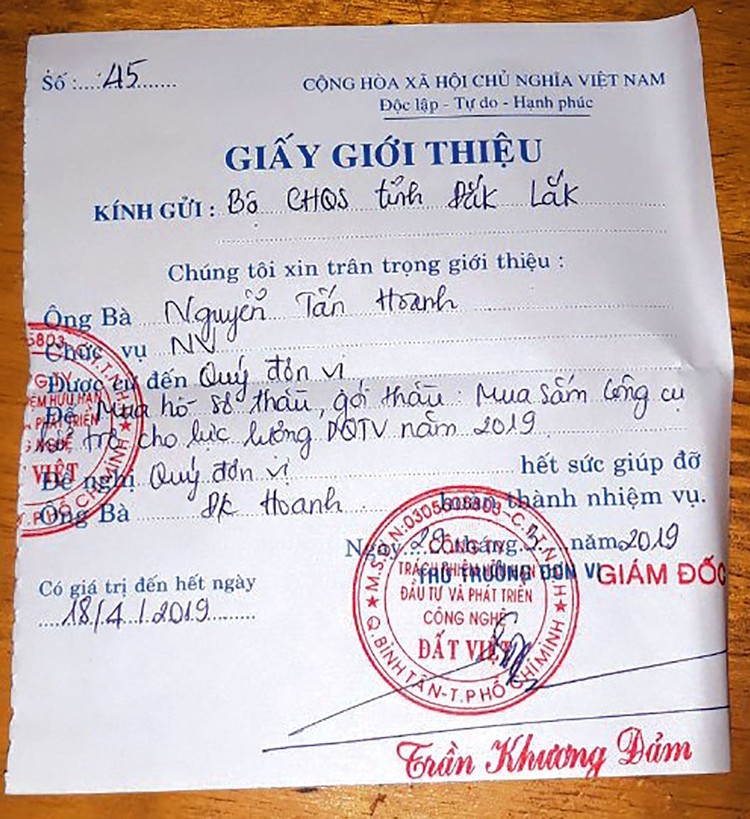 Số : 45
CỘNG HÒA XÃ HỘI CHỦ NGHĨA VIỆT NAM
Độc lập - Tự do - Hạnh phúc
GIẤY GIỚI THIỆU
KÍNH GỬI : Bộ CHQS tỉnh Đắk Lắk
Chúng tôi xin trân trọng giới thiệu :
Ông Bà Nguyễn Tấn Hoanh
Chức vụ NV
Được cử đến Quý đơn vị
Để Mua hồ sơ thầu, gói thầu : Mua sắm Công cụ
hỗ trợ cho lực lượng DQTV năm 2019
Đề nghị Quý đơn vị hết sức giúp đỡ
Ông Bà Hoanh hoàn thành nhiệm vụ.
Ngày 28 tháng năm 2019
THỦ TRƯỞNG ĐƠN VỊ GIÁM ĐỐC
Có giá trị đến hết ngày
18/4/2019
M.S.D.N:0305605803-C.T.T.N.H.H
CÔNG TY
TRÁCH NHIỆM HỮU HẠN
ĐẦU TƯ VÀ PHÁT TRIỂN
CÔNG NGHỆ
ĐẤT VIỆT
Q.BÌNH TÂN-T.PHỐ CHÍ MINH
Trần Khương Đảm